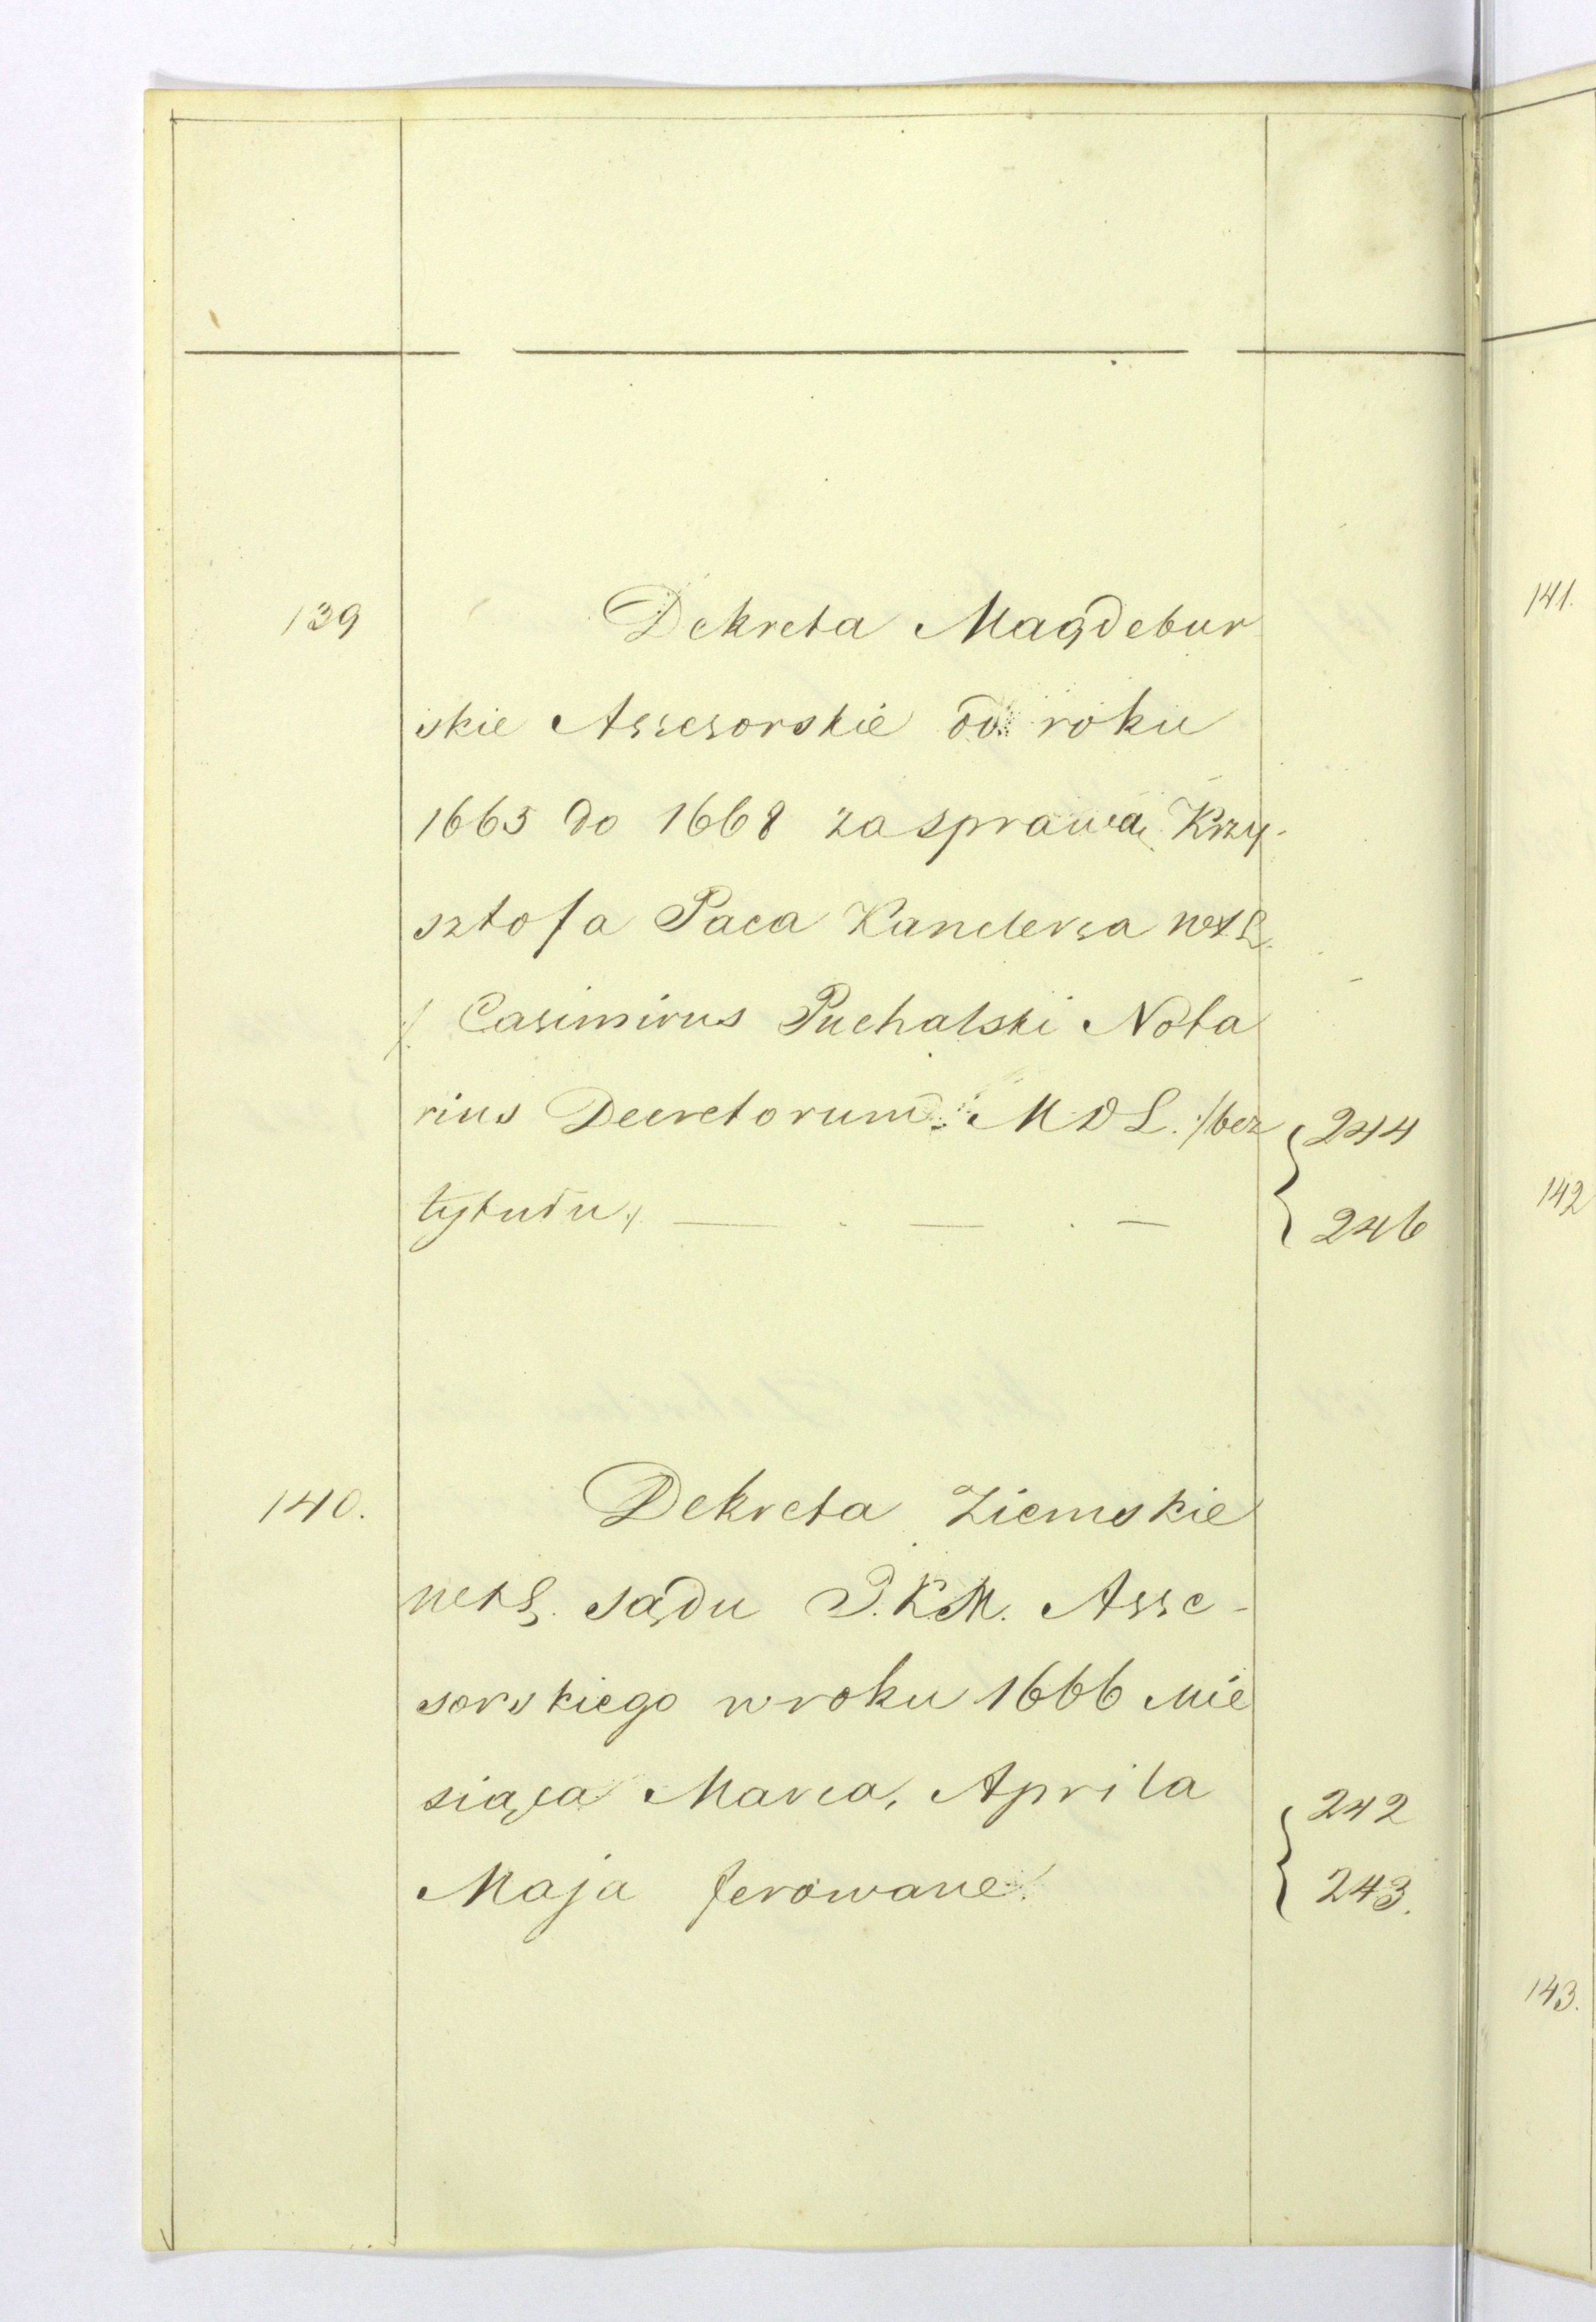 139 Dekreta Magdebur
skie Assesorskie od roku
1665 do 1668 za sprawą Krzy-
sztofa Paca Kanclerza WXL.
/ Casimirus Puchalski Nota
rius Decretorum MDL. /bez 244
tytułu/ — . — . — 246
140. Dekreta Ziemskie
WXL. sądu J.K.M. Asse-
sorskiego w roku 1666 mie
siąca Marca, Aprila 242
Maja ferowane 243.
141.
142
143.